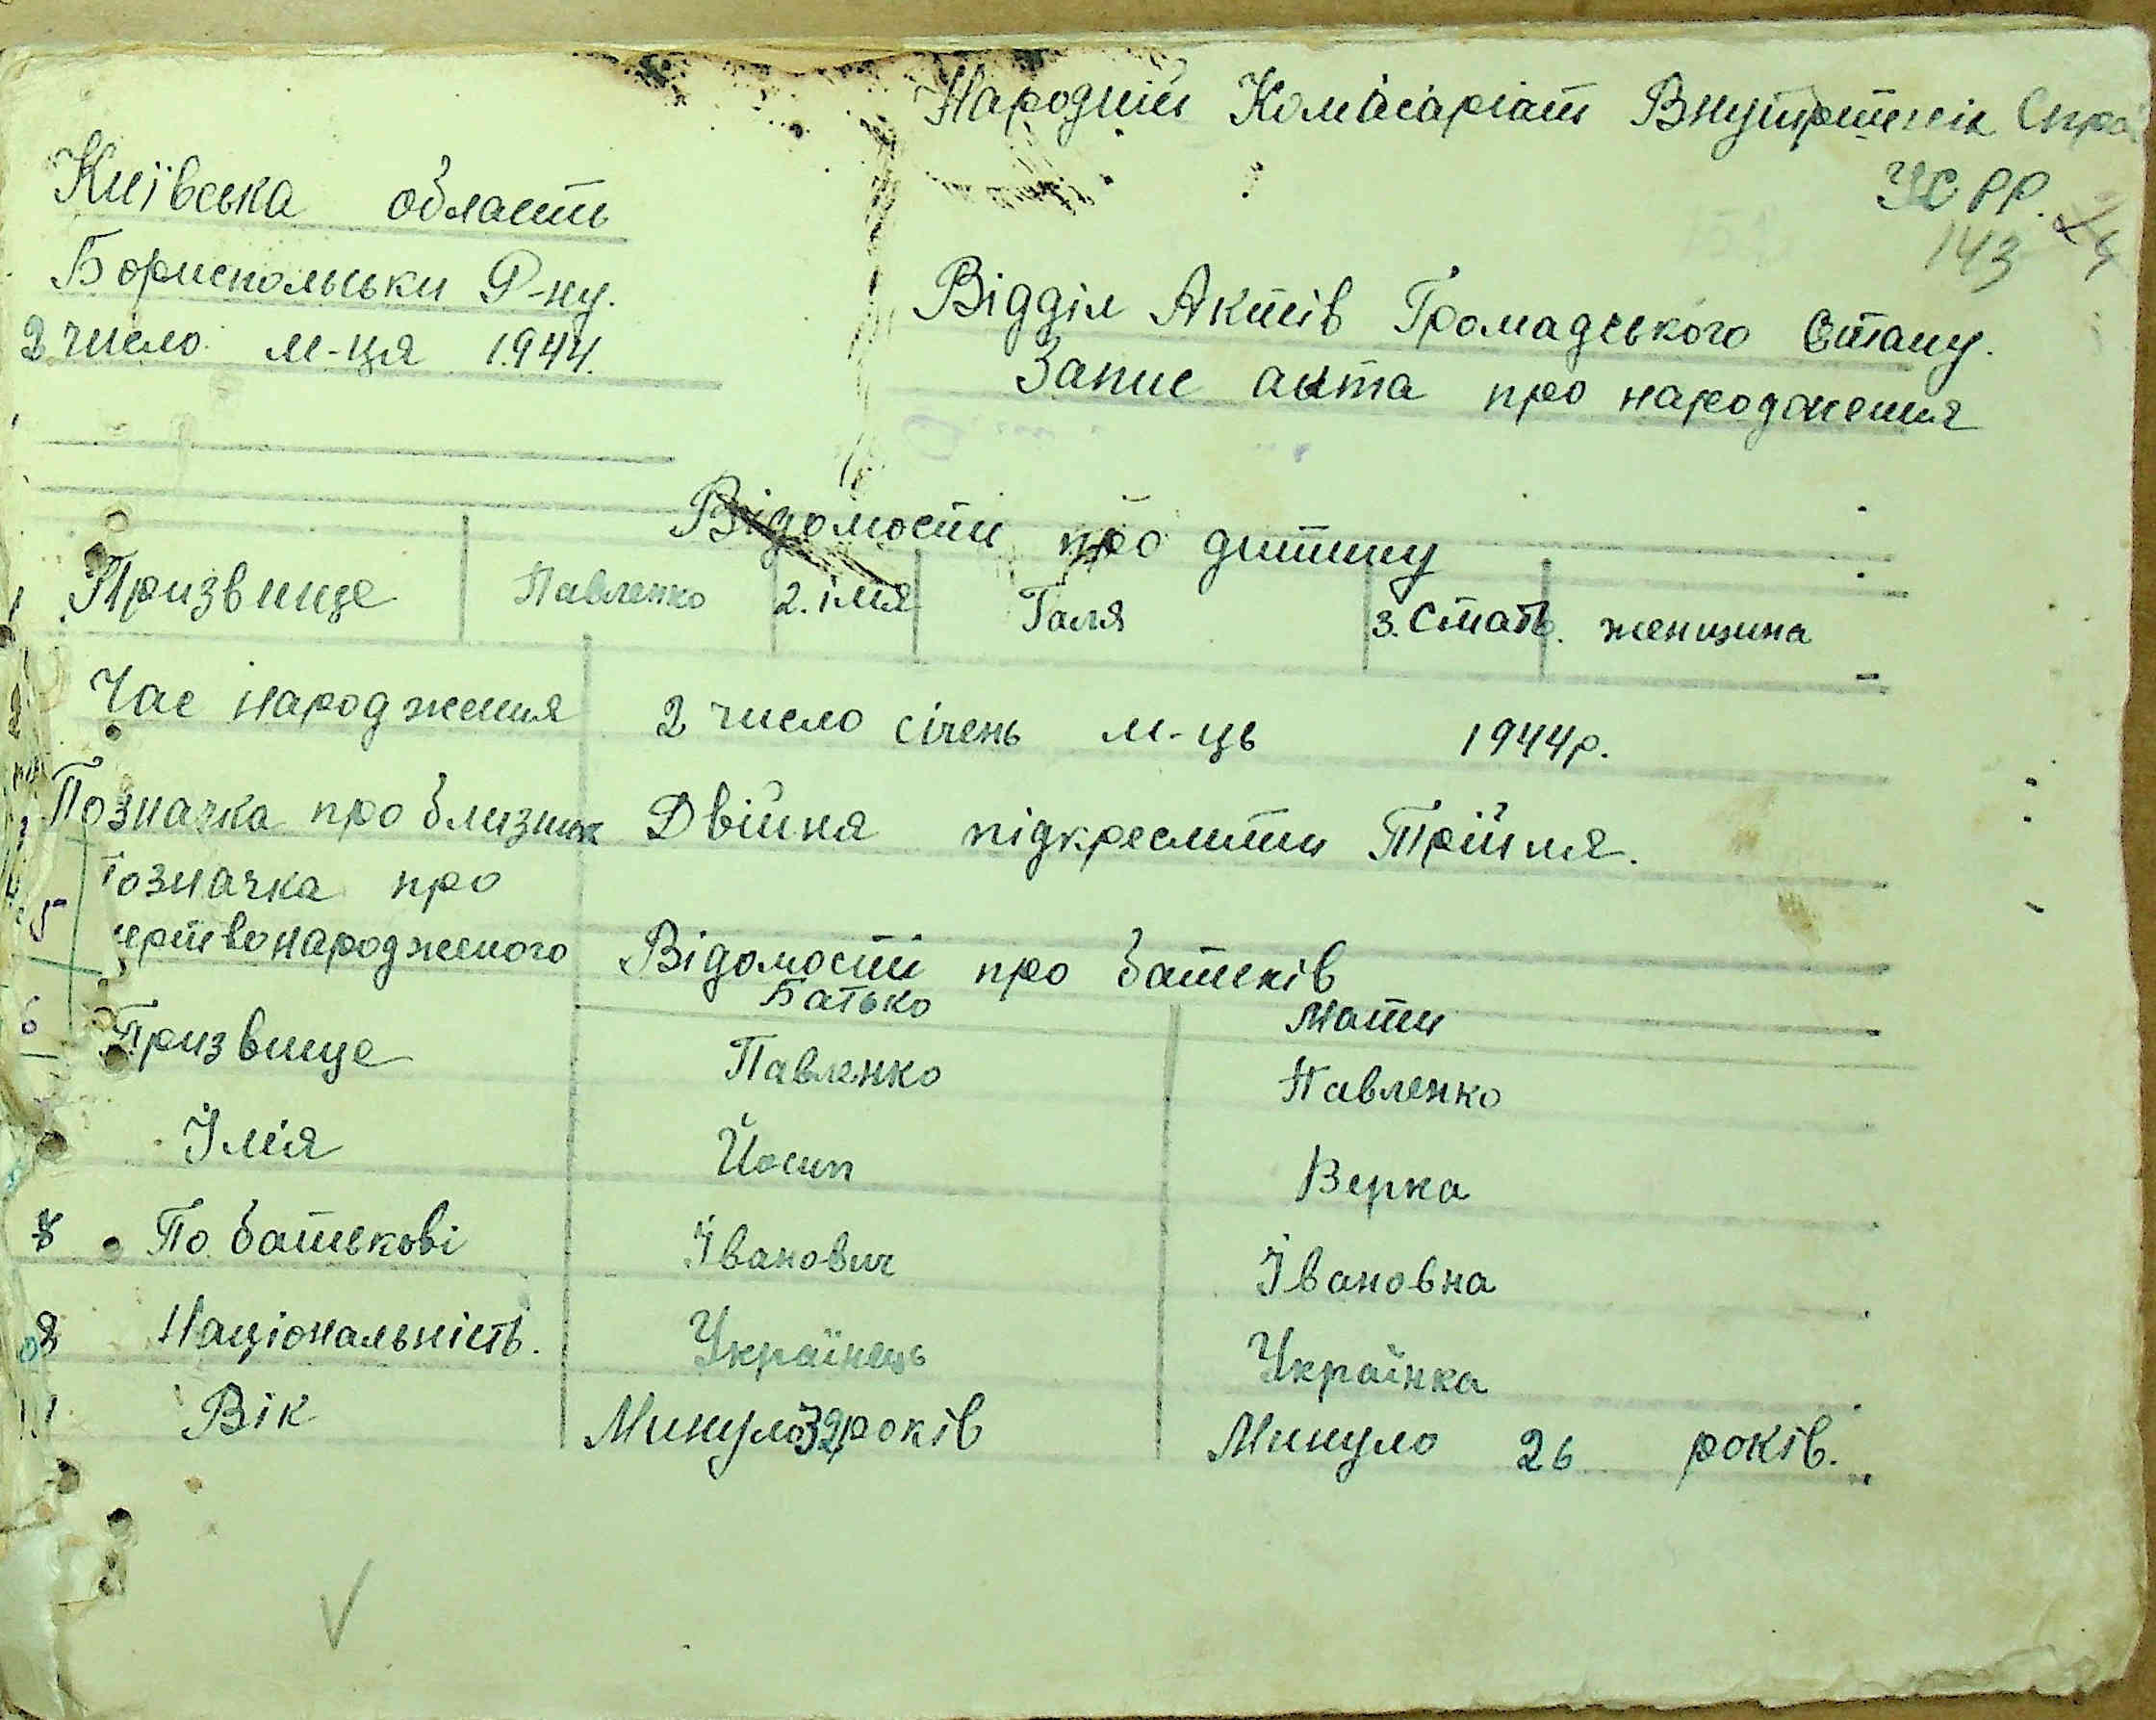 Народній Комісаріат Внутрішніх Спра
УСРР.
143 24
Київська область
Бориспольськи Р-ну.
2 число м-ця 1944.
Відділ Актів Громадського Стану.
Запис акта про народження
Відомости про дитину
Призвище Павленко 2. імя Галя 3. Стать. женщина
Час народження 2 число січень м-ць 1944р.
Позначка про близник Двійня підкреслити Трійня.
позначка про
мертвонародженого Відомості про батьків
Батько Мати
Призвище Павленко Павленко
Імія Йосип Верка
По батькові Іванович Івановна
Національність. Українець Українка
Вік Минуло 32 років Минуло 26 років.